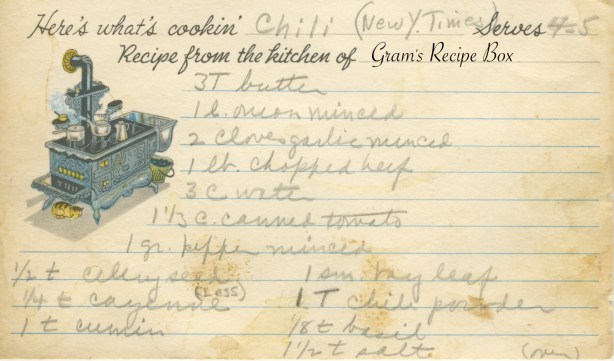 Here's what's cookin' Chili (New Y. Times) Serves 4-5
Recipe from the kitchen of Gram's Recipe Box
3T butter
1 lb. onion minced
2 cloves garlic minced
1 lb. chopped beef
3 c water
1 1/3 c. canned tomato
1 gr. pepper minced
1/2 t celery seed 1 sm. bay leaf
1/4 t cayenne (Less) 1 T chili powder
1 t cumin 1/8 t basil
1 1/2 t salt (over)